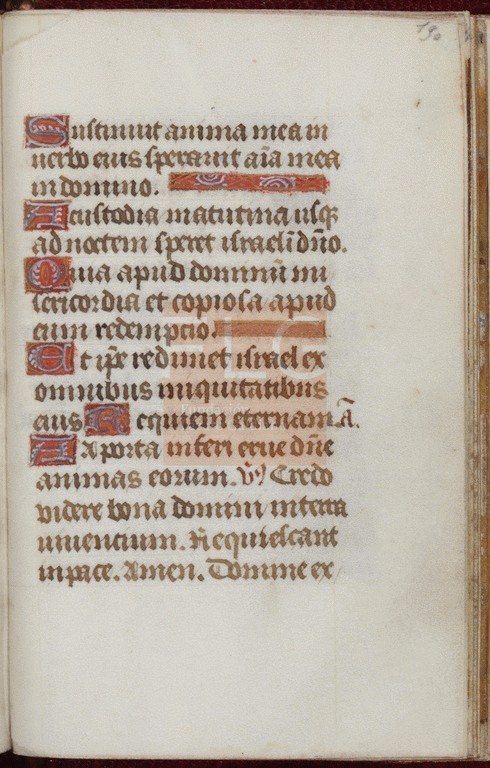 190
Sustinuit anima mea in
uerbo eius sperauit aīa mea
in domino.
A custodia matutina usq̄
ad noctem speret israel ī dn̄o.
Quia apud dominū mi
sericordia et copiosa apud
eum redemptio.
Et ip̄e redimet israel ex
omnibus iniquitatibus
eius Requiem eternam. A̅.
A porta inferi erue dn̄e
animas eorum. ℣ Credo
videre bona domini in terra
uiuencium. Requiescant
in pace. Amen. Domine ex/